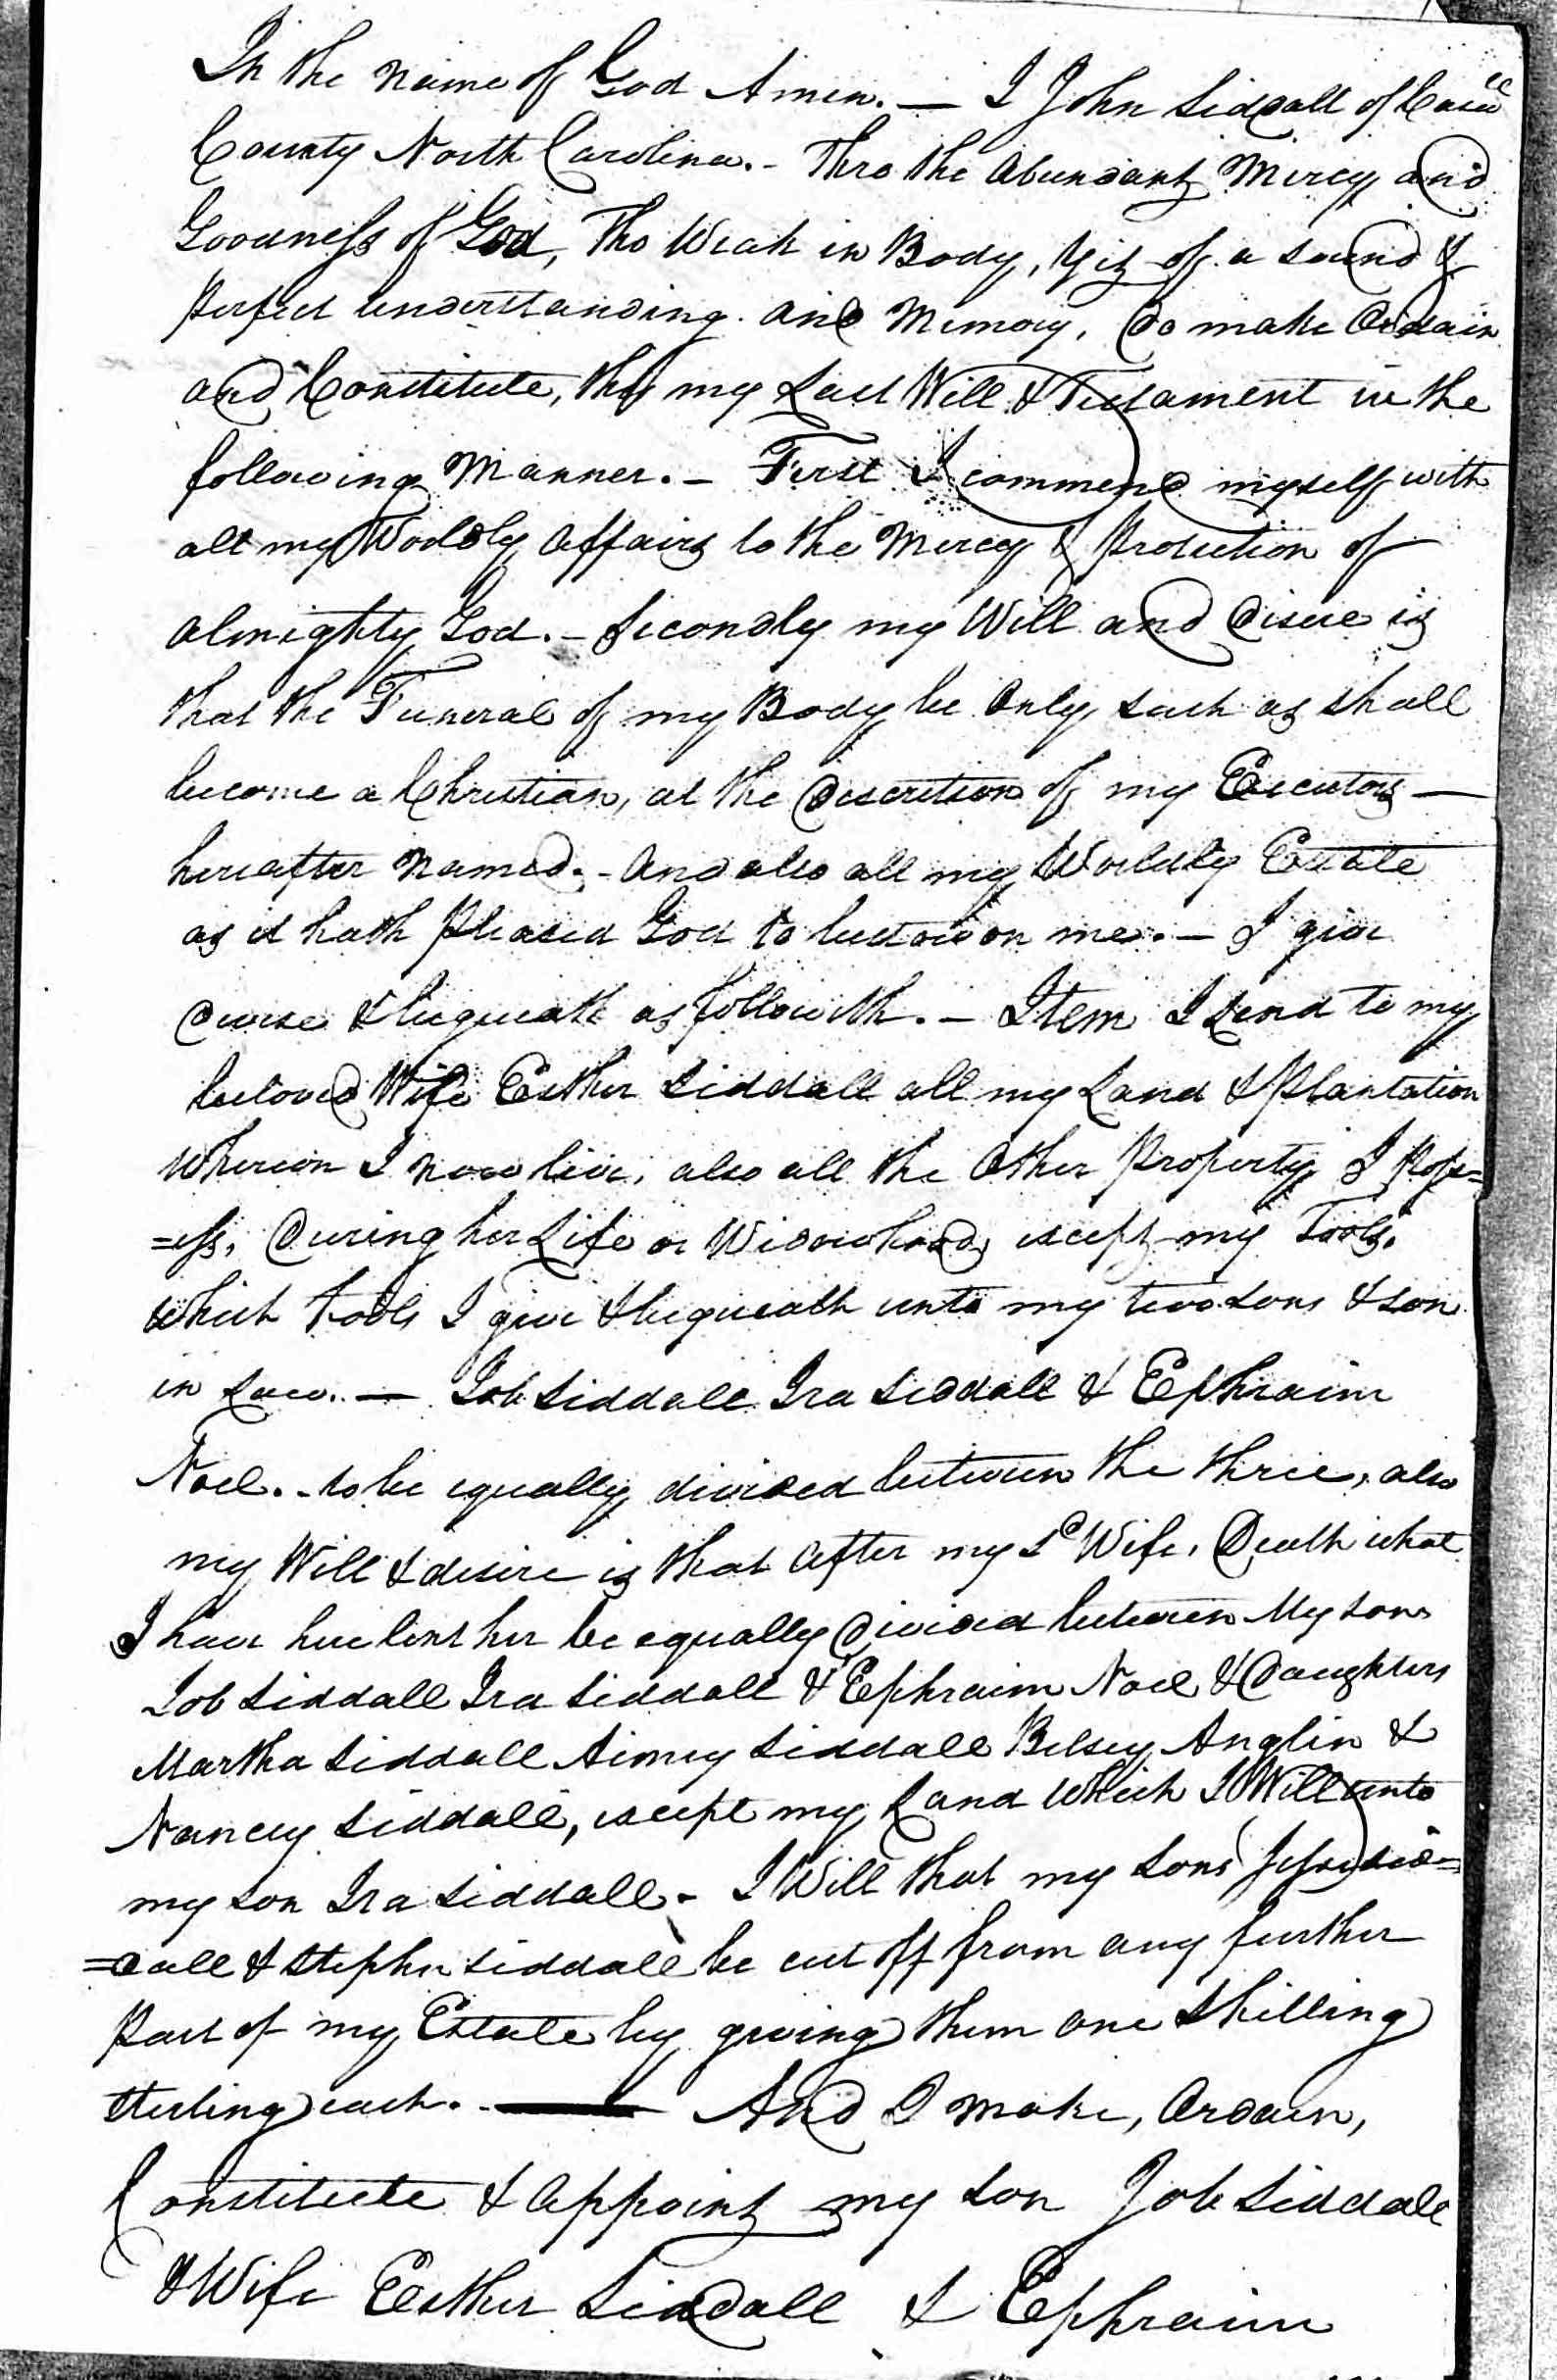 In the name of God Amen. — I John Siddall of Casw<sup>ll</sup>
County North Carolina. - Thro the abundant Mercy and
Goodness of God, Tho Weak in Body, Yet of a sound &
Perfect understanding and Memory, do make Ordain
and Constitute, this my Last Will & Testament in the
following Manner. - First I commend myself with
all my Worldly affairs to the Mercy & Protection of
almighty God. - Secondly my Will and Desire is
that the Funeral of my Body be Only such as shall
become a Christian, at the discretion of my Executors —
hereafter Named. - And also all my Worldly Estate
as it hath Pleased God to bestow on me. — I give
devise & bequeath as followith. - Item I Lend to my
beloved Wife Esther Siddall all my Land & Plantation
Whereon I now live, also all the Other Property I Poss=
=ess, During her Life or Widowhood, except my Tools.
which tools I give & bequeath unto my two sons & son
in Law. — Job Siddall Ira Siddall & Ephraim
Noel. - to be equally divided between the three, also
my Will & desire is that after my s<sup>d</sup> Wife, Death what
I have here lent her be equally Divided between My sons
Job Siddall Ira Siddall & Ephraim Noel & Daughters
Martha Siddall Aimey Siddall Betsey Anglin &
Nancy Siddall, except my Land Which I Will unto
my son Ira Siddall - I Will that my sons Jesse Sid=
=dall & Stephen Siddall be cut off from any further
Part of my Estate by giving them one Shilling
Sterling each. — And I make, Ordain,
Constitute & Appoint my son Job Siddall
& Wife Esther Siddall & Ephraim